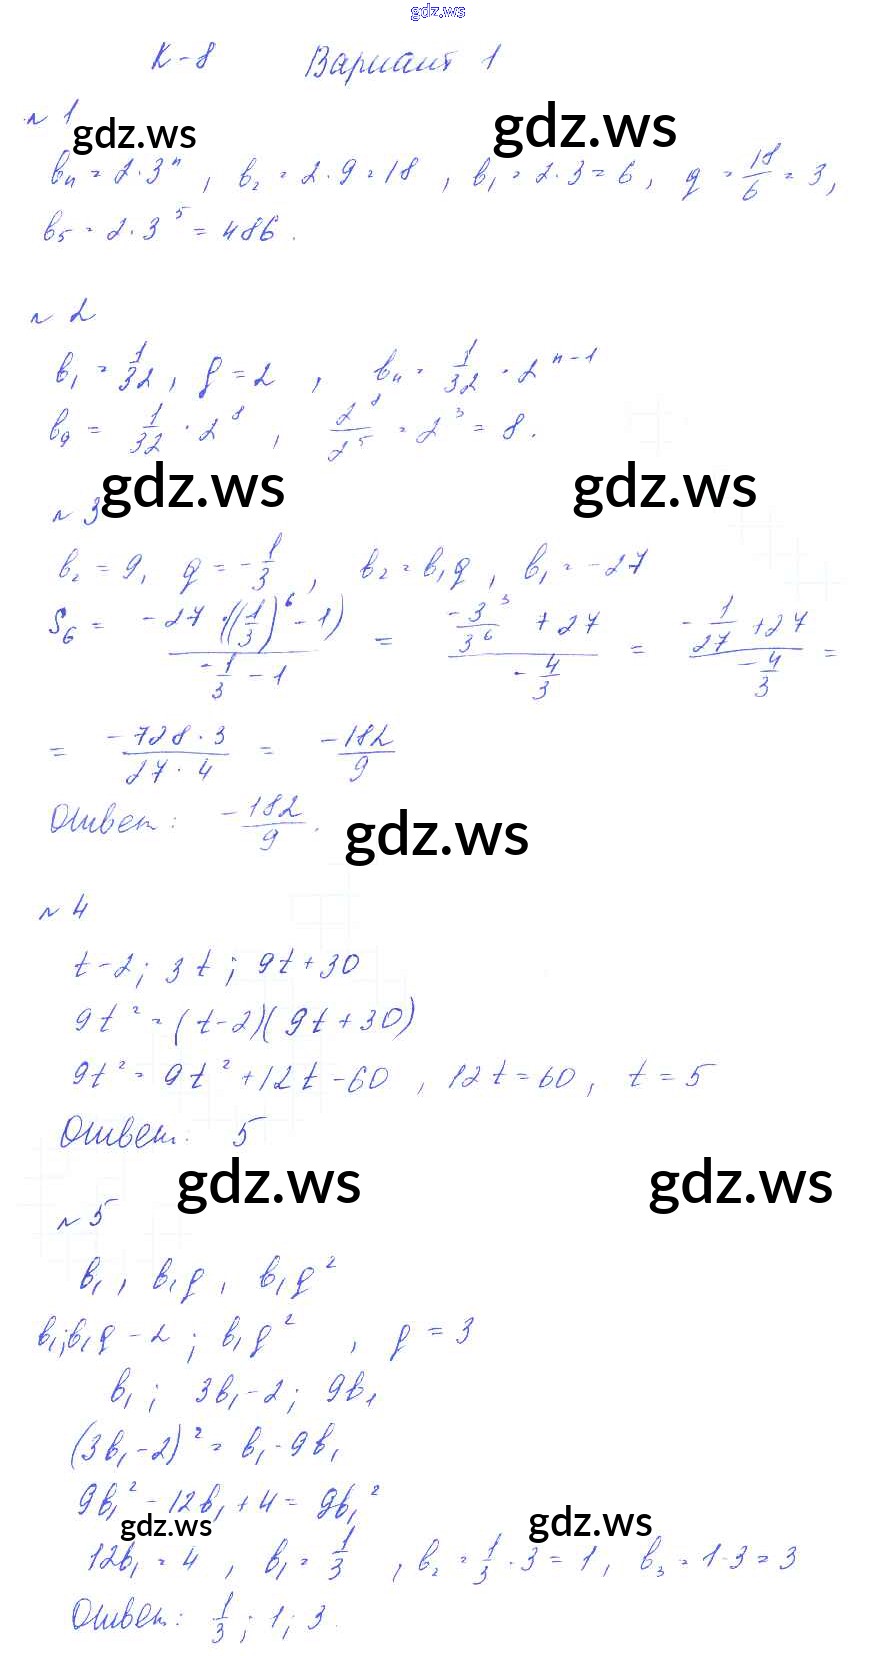 gdz.ws
К-8 Вариант 1
n 1
gdz.ws gdz.ws
bₙ = 2·3ⁿ, b₂ = 2·9 = 18, b₁ = 2·3 = 6, q = 18/6 = 3,
b₅ = 2·3⁵ = 486.
n 2
b₁ = 1/32, q = 2, bₙ = 1/32 · 2ⁿ⁻¹
b₉ = 1/32 · 2⁸, 2⁸/2⁵ = 2³ = 8.
gdz.ws gdz.ws
n 3
b₂ = 9, q = -1/3, b₂ = b₁q, b₁ = -27
S₆ = -27·((1/3)⁶ - 1) / (-1/3 - 1) = (-3³/3⁶ + 27) / (-4/3) = (-1/27 + 27) / (-4/3) =
= -728·3 / 27·4 = -182/9
Ответ: -182/9.
gdz.ws
n 4
t-2; 3t; 9t+30
9t² = (t-2)(9t+30)
9t² = 9t² + 12t - 60, 12t = 60, t = 5
Ответ: 5
gdz.ws gdz.ws
n 5
b₁, b₁q, b₁q²
b₁; b₁q - 2; b₁q², q = 3
b₁; 3b₁-2; 9b₁
(3b₁-2)² = b₁·9b₁
9b₁² - 12b₁ + 4 = 9b₁²
gdz.ws gdz.ws
12b₁ = 4, b₁ = 1/3, b₂ = 1/3 · 3 = 1, b₃ = 1·3 = 3
Ответ: 1/3; 1; 3.